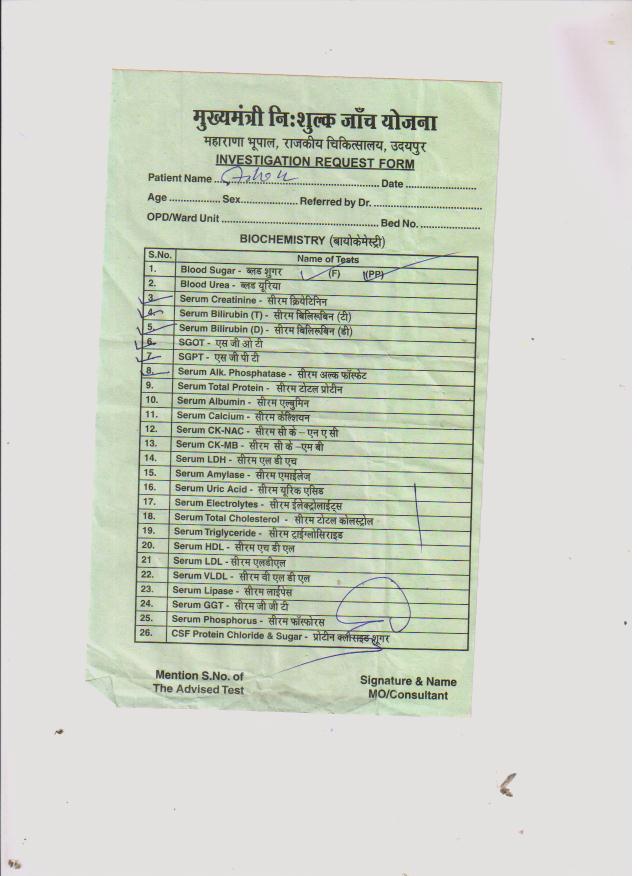 मुख्यमंत्री निःशुल्क जाँच योजना
महाराणा भूपाल, राजकीय चिकित्सालय, उदयपुर
INVESTIGATION REQUEST FORM
Patient Name ........ Date ........
Age ........ Sex ........ Referred by Dr. ........
OPD/Ward Unit ........ Bed No. ........
BIOCHEMISTRY (बायोकेमेस्ट्री)
S.No. Name of Tests
1. Blood Sugar - ब्लड शुगर (F) (PP)
2. Blood Urea - ब्लड यूरिया
3. Serum Creatinine - सीरम क्रियेटिनिन
4. Serum Bilirubin (T) - सीरम बिलिरूबिन (टी)
5. Serum Bilirubin (D) - सीरम बिलिरूबिन (डी)
6. SGOT - एस जी ओ टी
7. SGPT - एस जी पी टी
8. Serum Alk. Phosphatase - सीरम अल्क फॉस्फेट
9. Serum Total Protein - सीरम टोटल प्रोटीन
10. Serum Albumin - सीरम एल्बुमिन
11. Serum Calcium - सीरम केल्शियन
12. Serum CK-NAC - सीरम सी के – एन ए सी
13. Serum CK-MB - सीरम सी के –एम बी
14. Serum LDH - सीरम एल डी एच
15. Serum Amylase - सीरम एमाईलेज
16. Serum Uric Acid - सीरम यूरिक एसिड
17. Serum Electrolytes - सीरम ईलेक्ट्रोलाईट्स
18. Serum Total Cholesterol - सीरम टोटल कोलस्ट्रोल
19. Serum Triglyceride - सीरम ट्राईग्लोसिराइड
20. Serum HDL - सीरम एच डी एल
21 Serum LDL - सीरम एलडीएल
22. Serum VLDL - सीरम वी एल डी एल
23. Serum Lipase - सीरम लाईपेस
24. Serum GGT - सीरम जी जी टी
25. Serum Phosphorus - सीरम फॉस्फोरस
26. CSF Protein Chloride & Sugar - प्रोटीन क्लोराइड शुगर
Mention S.No. of
The Advised Test
Signature & Name
MO/Consultant